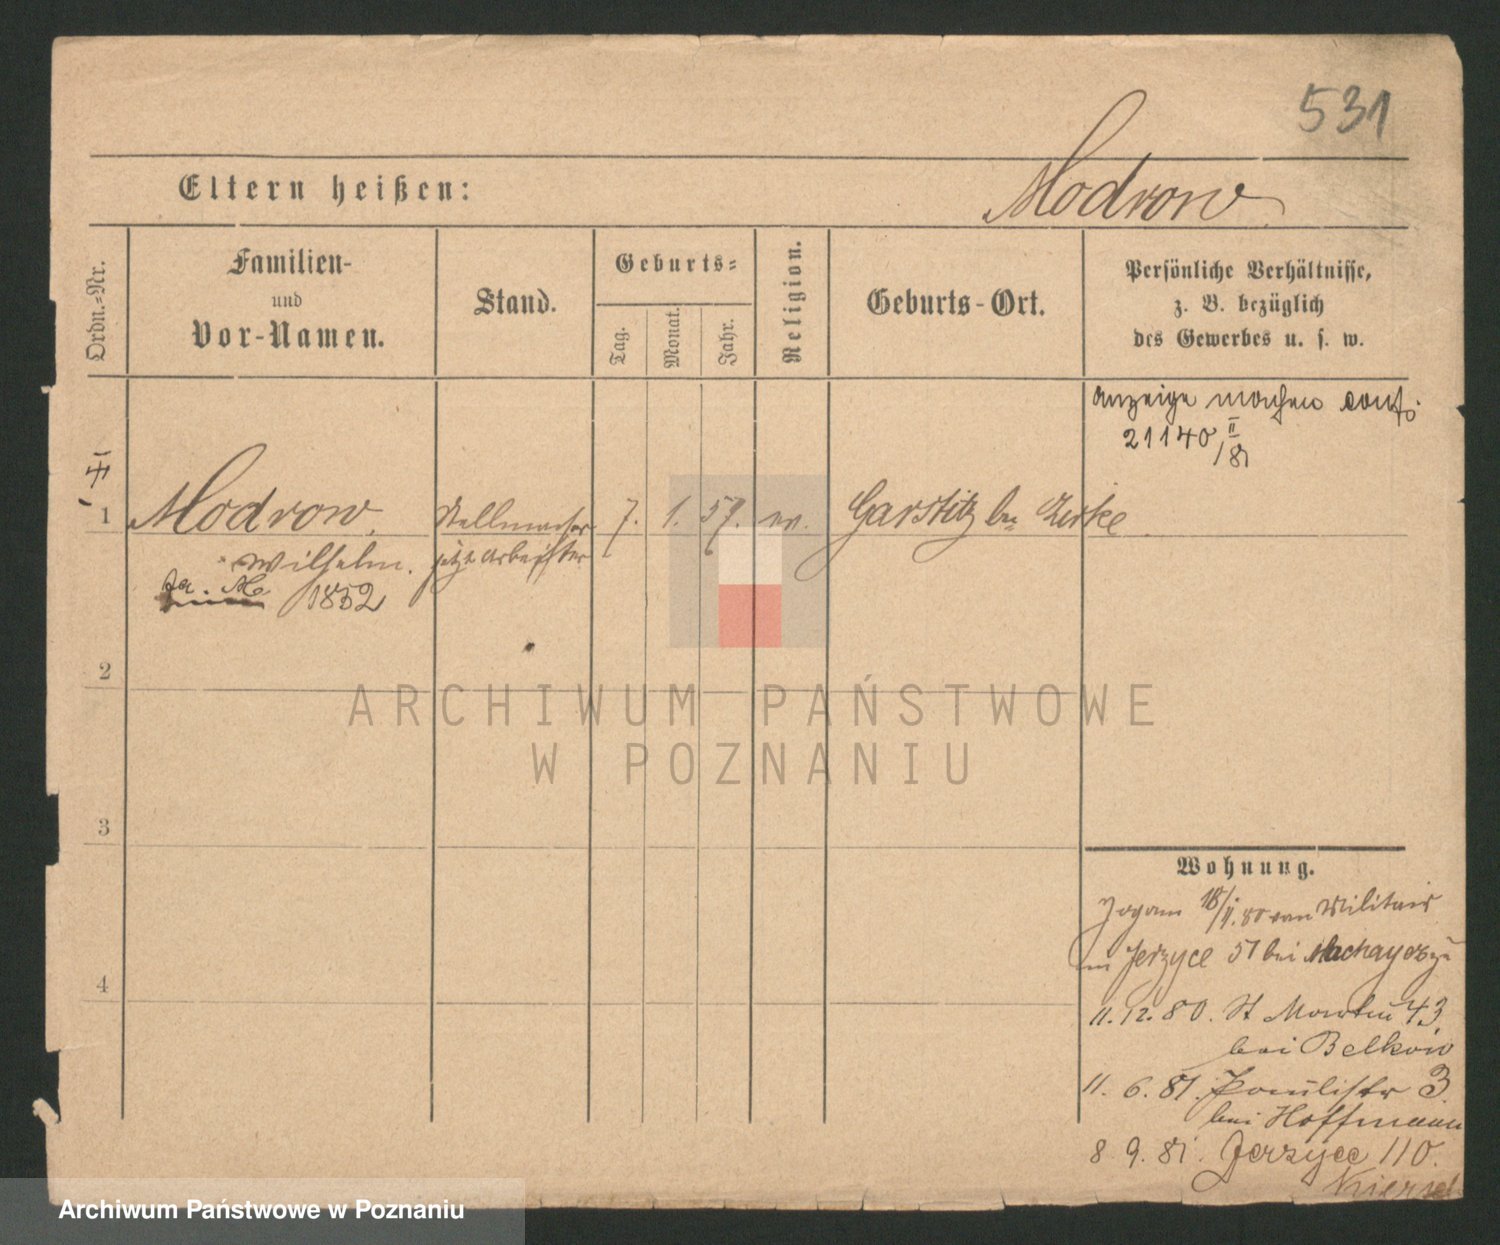 531
Eltern heißen:
Modrow
Ordn.=Nr.
Familien-
und
Vor-Namen.
Stand.
Geburts=
Tag.
Monat.
Jahr.
Religion.
Geburts-Ort.
Persönliche Verhältnisse,
z. B. bezüglich
des Gewerbes u. s. w.
Anzeige machen conf.
21140 II/81
1
Modrow
Stellmacher
7.
1.
57.
ev.
Garstitz bei Zirke
Wilhelm.
jetzt Arbeiter
1852
2
3
4
ARCHIWUM PAŃSTWOWE
W POZNANIU
Wohnung.
18/II. 80 vom Militair
in Jerzyce 57 bei
11. 12. 80. St Martin 43
bei Belkow
11. 6. 81. Paulistr 3.
bei Hoffmann
8 9. 81. Jerzyce 110.
Archiwum Państwowe w Poznaniu